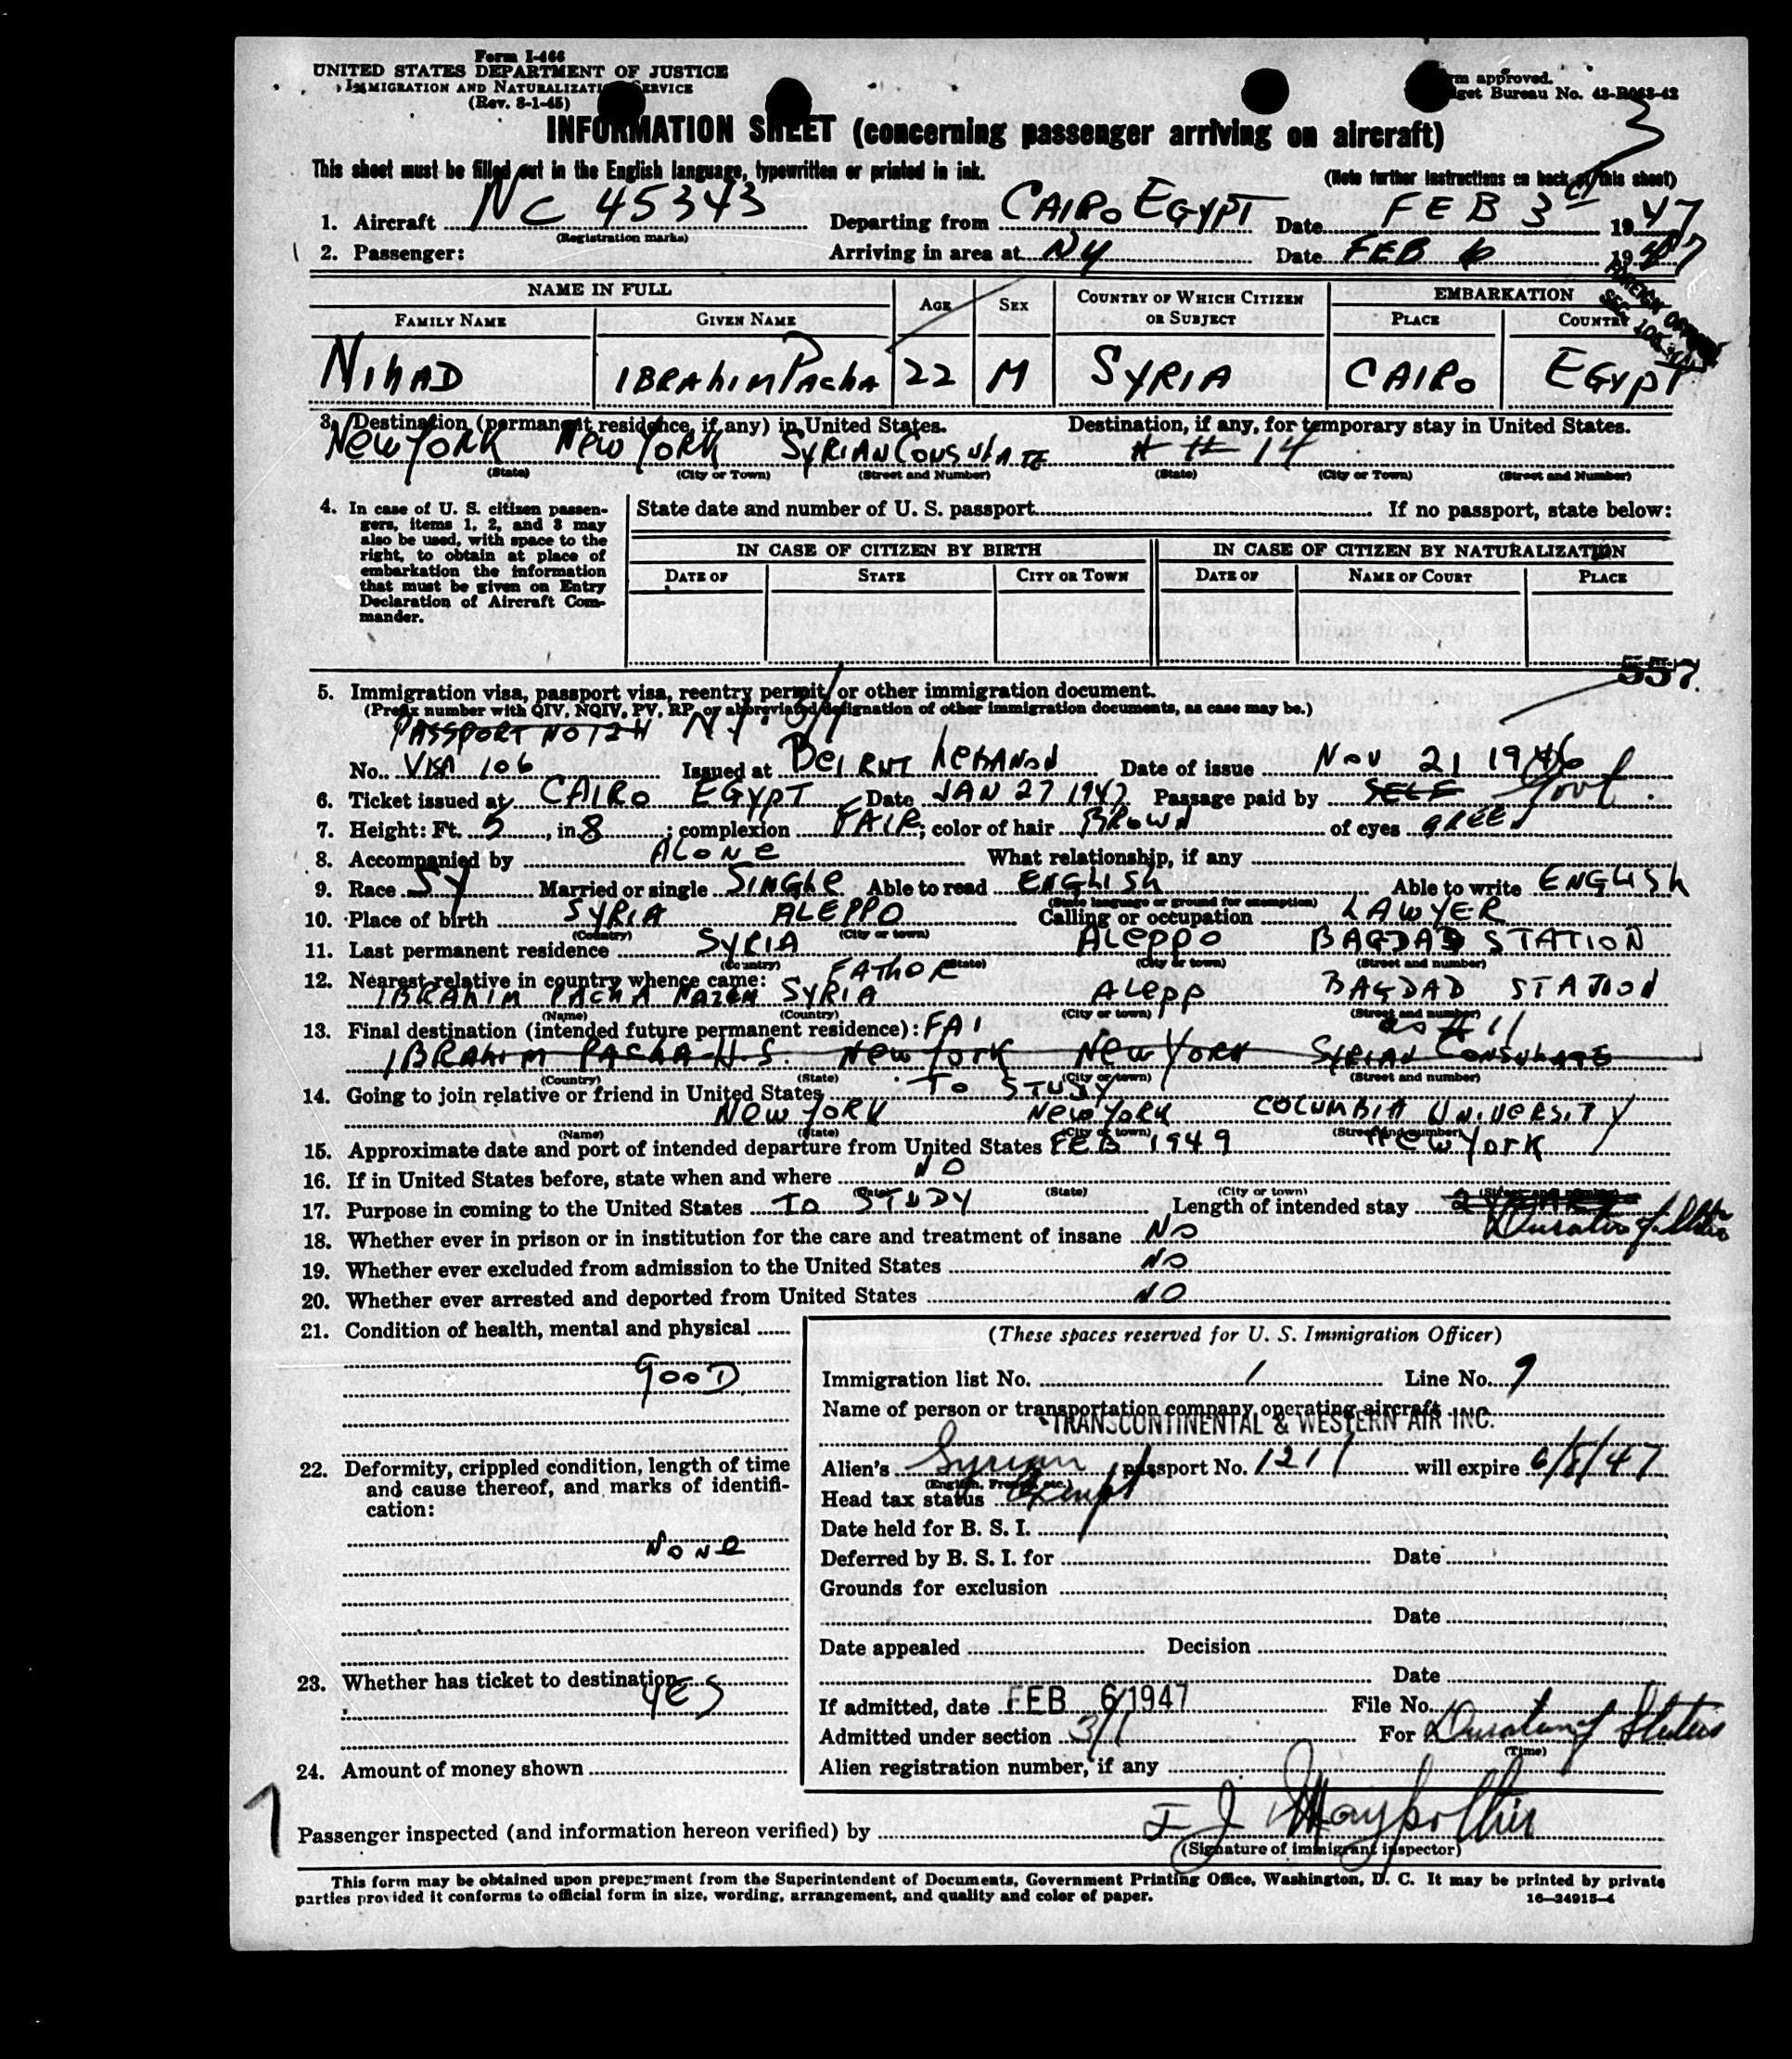 Form I-466
UNITED STATES DEPARTMENT OF JUSTICE
IMMIGRATION AND NATURALIZATION SERVICE
(Rev. 8-1-45)
approved.
Bureau No. 43-R063-42
3
INFORMATION SHEET (concerning passenger arriving on aircraft)
This sheet must be filled out in the English language, typewritten or printed in ink. (Note further instructions on back of this sheet)
1. Aircraft NC 45343 Departing from CAIRO EGYPT Date FEB 3 1947
(Registration marks)
2. Passenger: Arriving in area at NY Date FEB 6 1947
NAME IN FULL AGE SEX COUNTRY OF WHICH CITIZEN OR SUBJECT EMBARKATION
FAMILY NAME GIVEN NAME PLACE COUNTRY
NIHAD IBRAHIM PACHA 22 M SYRIA CAIRO EGYPT
3. Destination (permanent residence, if any) in United States. Destination, if any, for temporary stay in United States.
NEW YORK NEW YORK SYRIAN CONSULATE # 14
(State) (City or Town) (Street and Number) (State) (City or Town) (Street and Number)
4. In case of U. S. citizen passengers, items 1, 2, and 3 may also be used, with space to the right, to obtain at place of embarkation the information that must be given on Entry Declaration of Aircraft Commander.
State date and number of U. S. passport If no passport, state below:
IN CASE OF CITIZEN BY BIRTH IN CASE OF CITIZEN BY NATURALIZATION
DATE OF STATE CITY OR TOWN DATE OF NAME OF COURT PLACE
557
5. Immigration visa, passport visa, reentry permit, or other immigration document.
(Prefix number with QIV, NQIV, PV, RP, or abbreviated designation of other immigration documents, as case may be.)
No. VISA 106 Issued at BEIRUT LEBANON Date of issue NOV 21 1946
6. Ticket issued at CAIRO EGYPT Date JAN 27 1947 Passage paid by SELF Govt.
7. Height: Ft. 5, in. 8; complexion FAIR; color of hair BROWN of eyes GREEN
8. Accompanied by ALONE What relationship, if any
9. Race SY Married or single SINGLE Able to read ENGLISH Able to write ENGLISH
(State language or ground for exemption)
10. Place of birth SYRIA ALEPPO Calling or occupation LAWYER
(Country) (City or town)
11. Last permanent residence SYRIA ALEPPO BAGDAD STATION
(Country) (State) (City or town) (Street and number)
12. Nearest relative in country whence came: FATHOR
IBRAHIM PACHA SYRIA ALEPP BAGDAD STATION
(Name) (Country) (City or town) (Street and number)
13. Final destination (intended future permanent residence): FAI as # 11
IBRAHIM PACHA U.S. NEW YORK NEW YORK SYRIAN CONSULATE
(Country) (State) (City or town) (Street and number)
14. Going to join relative or friend in United States TO STUDY
NEW YORK NEW YORK COLUMBIA UNIVERSITY
(Name) (State) (City or town) (Street and number)
15. Approximate date and port of intended departure from United States FEB 1949 NEW YORK
16. If in United States before, state when and where NO
(Date) (State) (City or town) (Street and number)
17. Purpose in coming to the United States TO STUDY Length of intended stay Duration of Status
18. Whether ever in prison or in institution for the care and treatment of insane NO
19. Whether ever excluded from admission to the United States NO
20. Whether ever arrested and deported from United States NO
21. Condition of health, mental and physical
GOOD
22. Deformity, crippled condition, length of time and cause thereof, and marks of identification:
NONE
23. Whether has ticket to destination
YES
24. Amount of money shown
(These spaces reserved for U. S. Immigration Officer)
Immigration list No. 1 Line No. 9
Name of person or transportation company operating aircraft
TRANSCONTINENTAL & WESTERN AIR INC.
Alien's Syrian passport No. 1211 will expire 6/8/47
(English, French, etc.)
Head tax status Exempt
Date held for B. S. I.
Deferred by B. S. I. for Date
Grounds for exclusion
Date
Date appealed Decision
Date
If admitted, date FEB 6 1947 File No.
Admitted under section 3/1 For Duration of Status
(Time)
Alien registration number, if any
1
Passenger inspected (and information hereon verified) by
(Signature of immigrant inspector)
This form may be obtained upon prepayment from the Superintendent of Documents, Government Printing Office, Washington, D. C. It may be printed by private
parties provided it conforms to official form in size, wording, arrangement, and quality and color of paper. 16—24915-4